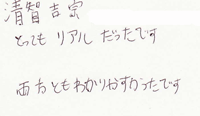 清智吉宗
とっても リアル だったです
両方ともわかりやすかったです